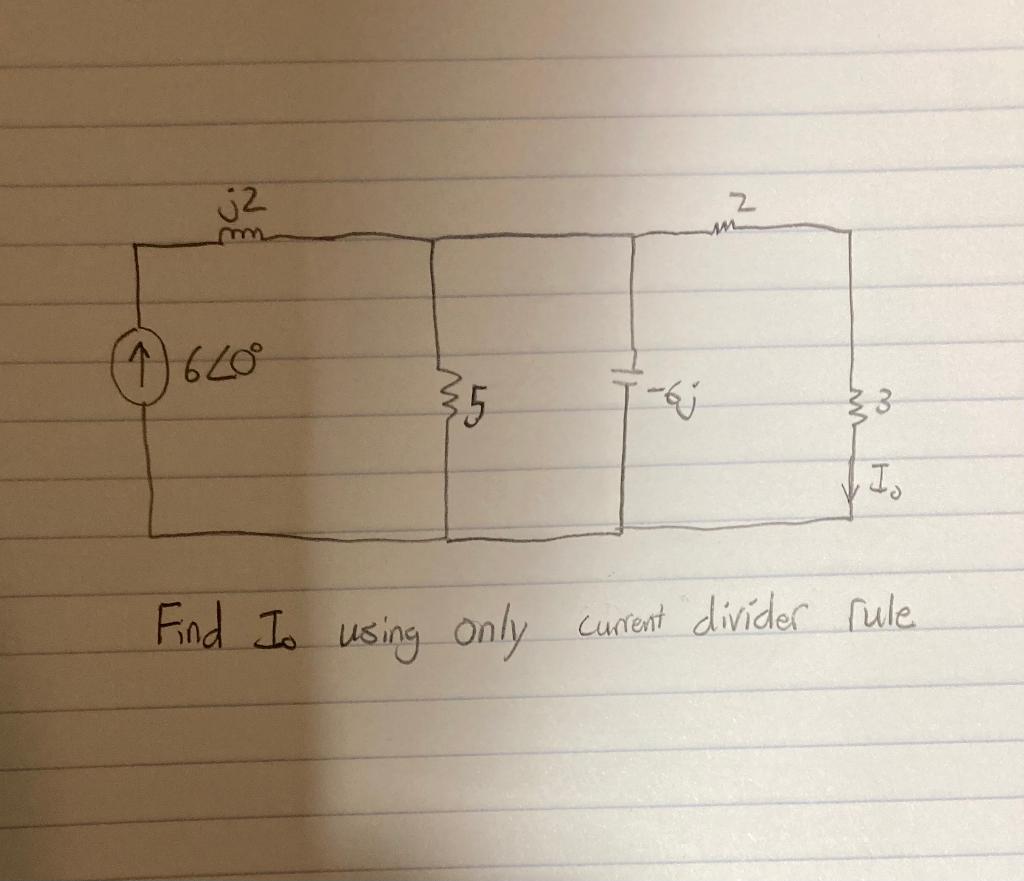 j2
2
6∠0°
5
-6j
3
I₀
Find I₀ using only current divider rule